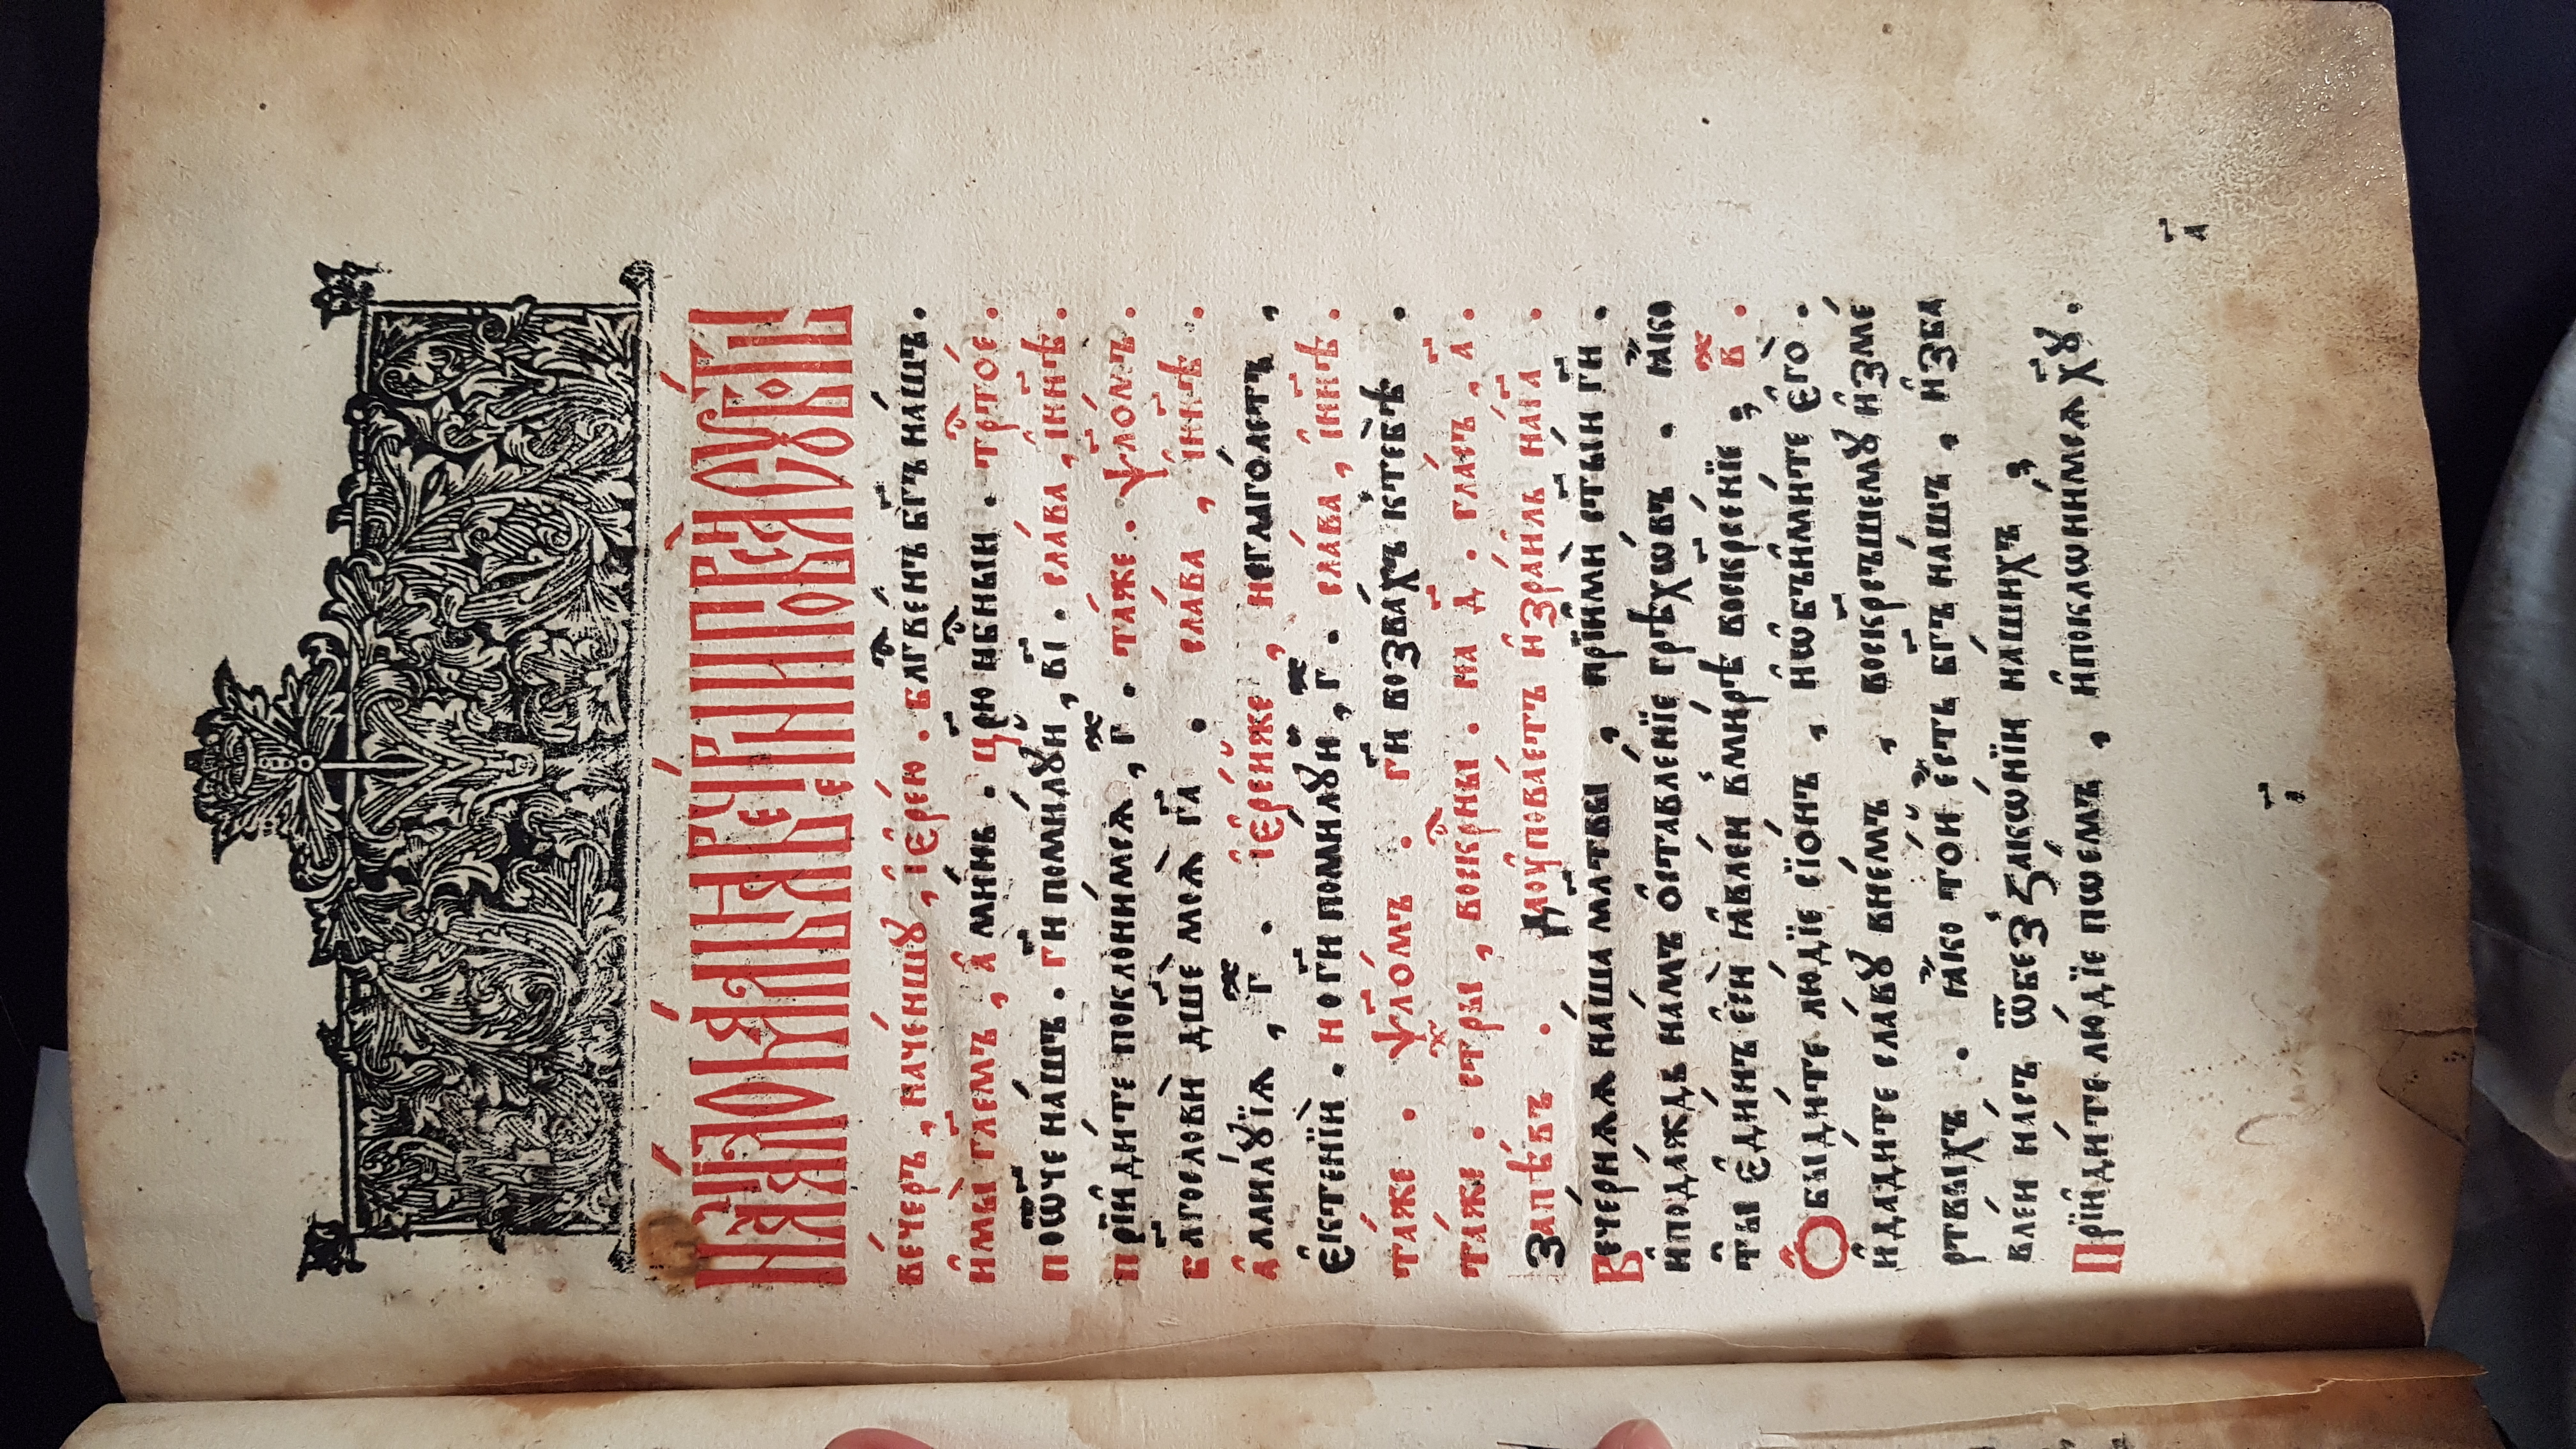 На́чало мáлыѧ вече́рни пре́дъ сꙋббо́тꙋ
ве́черъ , наче́ншꙋ , і҆ере́ю . бл҃гве́нъ бг҃ъ на́шъ .
и҆мы̀ гл҃емъ , а҆ми́нь . цр҃ю нб҃ныи . трт҃о́е .
по ѿч҃е на́шъ . гд҃и поми́лꙋи , в҃і . сла́ва , и҆нн҃ѣ .
прїиди́те поклони́мсѧ , г҃ . та́же . ѱало́мъ .
бл҃гослови̂ дш҃е моѧ̀ гд҃а . сла́ва , і҆нн҃ѣ .
а҆лилꙋ́їа , г҃ . і҆ере́иже , неглаго́летъ ,
є҆ктенїи̂ . но гд҃и поми́лꙋи , г҃ . сла́ва , і҆нн҃ѣ .
та́же . ѱало́мъ . гд҃и возва́хъ к̾тебѣ̀ .
та́же . стр҃ы , воскр҃ны . на д҃ . гла́съ , а҃ .
Запѣ́въ . Да оу҆пова́етъ и҆зра́иль на гд҃а
Вече́рнѧѧ на́ша мл҃твы , прїи҆мѝ ст҃ы́и гд҃и .
и҆пода́ждь на́мъ ѡ҆ставле́нїе грѣхѡ́въ . ꙗ҆ко
ты̂ є҆ди́нъ є҆сѝ ꙗ҆вле́и в̾ми́рѣ воскр҃се́нїе , в҃ .
Ѻ҆быди́те лю́дїе сїо́нъ , и҆ѡ҆б̾ыми́те є҆го̀ .
и҆дади́те сла́вꙋ внемъ , воскрс҃ъшемꙋ и҆зме́
ртвыхъ . ꙗ҆ко то́и є҆сть бг҃ъ на́шъ , и҆зба
влеи на́съ ѿбез̾зако́нїи на́шихъ ,
Прїиди́те лю́дїе пѡе́мъ , и҆поклони́мсѧ хꙋ҃ .
а҃